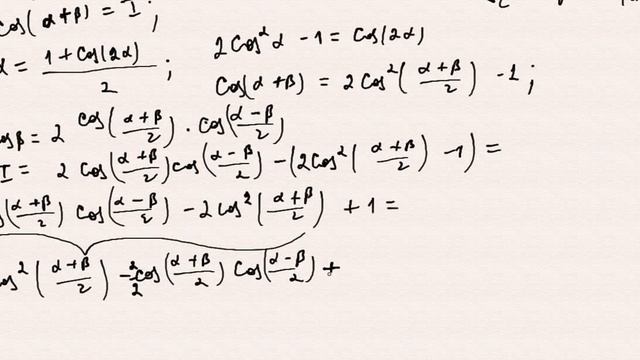 cos(α+β) = I ;
2cos²α - 1 = cos(2α)
α = (1 + cos(2α))/2 ;
cos(α+β) = 2cos²((α+β)/2) - 1 ;
cosβ = 2 cos((α+β)/2) · cos((α-β)/2)
I = 2 cos((α+β)/2) cos((α-β)/2) - (2cos²((α+β)/2) - 1) =
s((α+β)/2) cos((α-β)/2) - 2cos²((α+β)/2) + 1 =
cos²((α+β)/2) - cos((α+β)/2) cos((α-β)/2) +